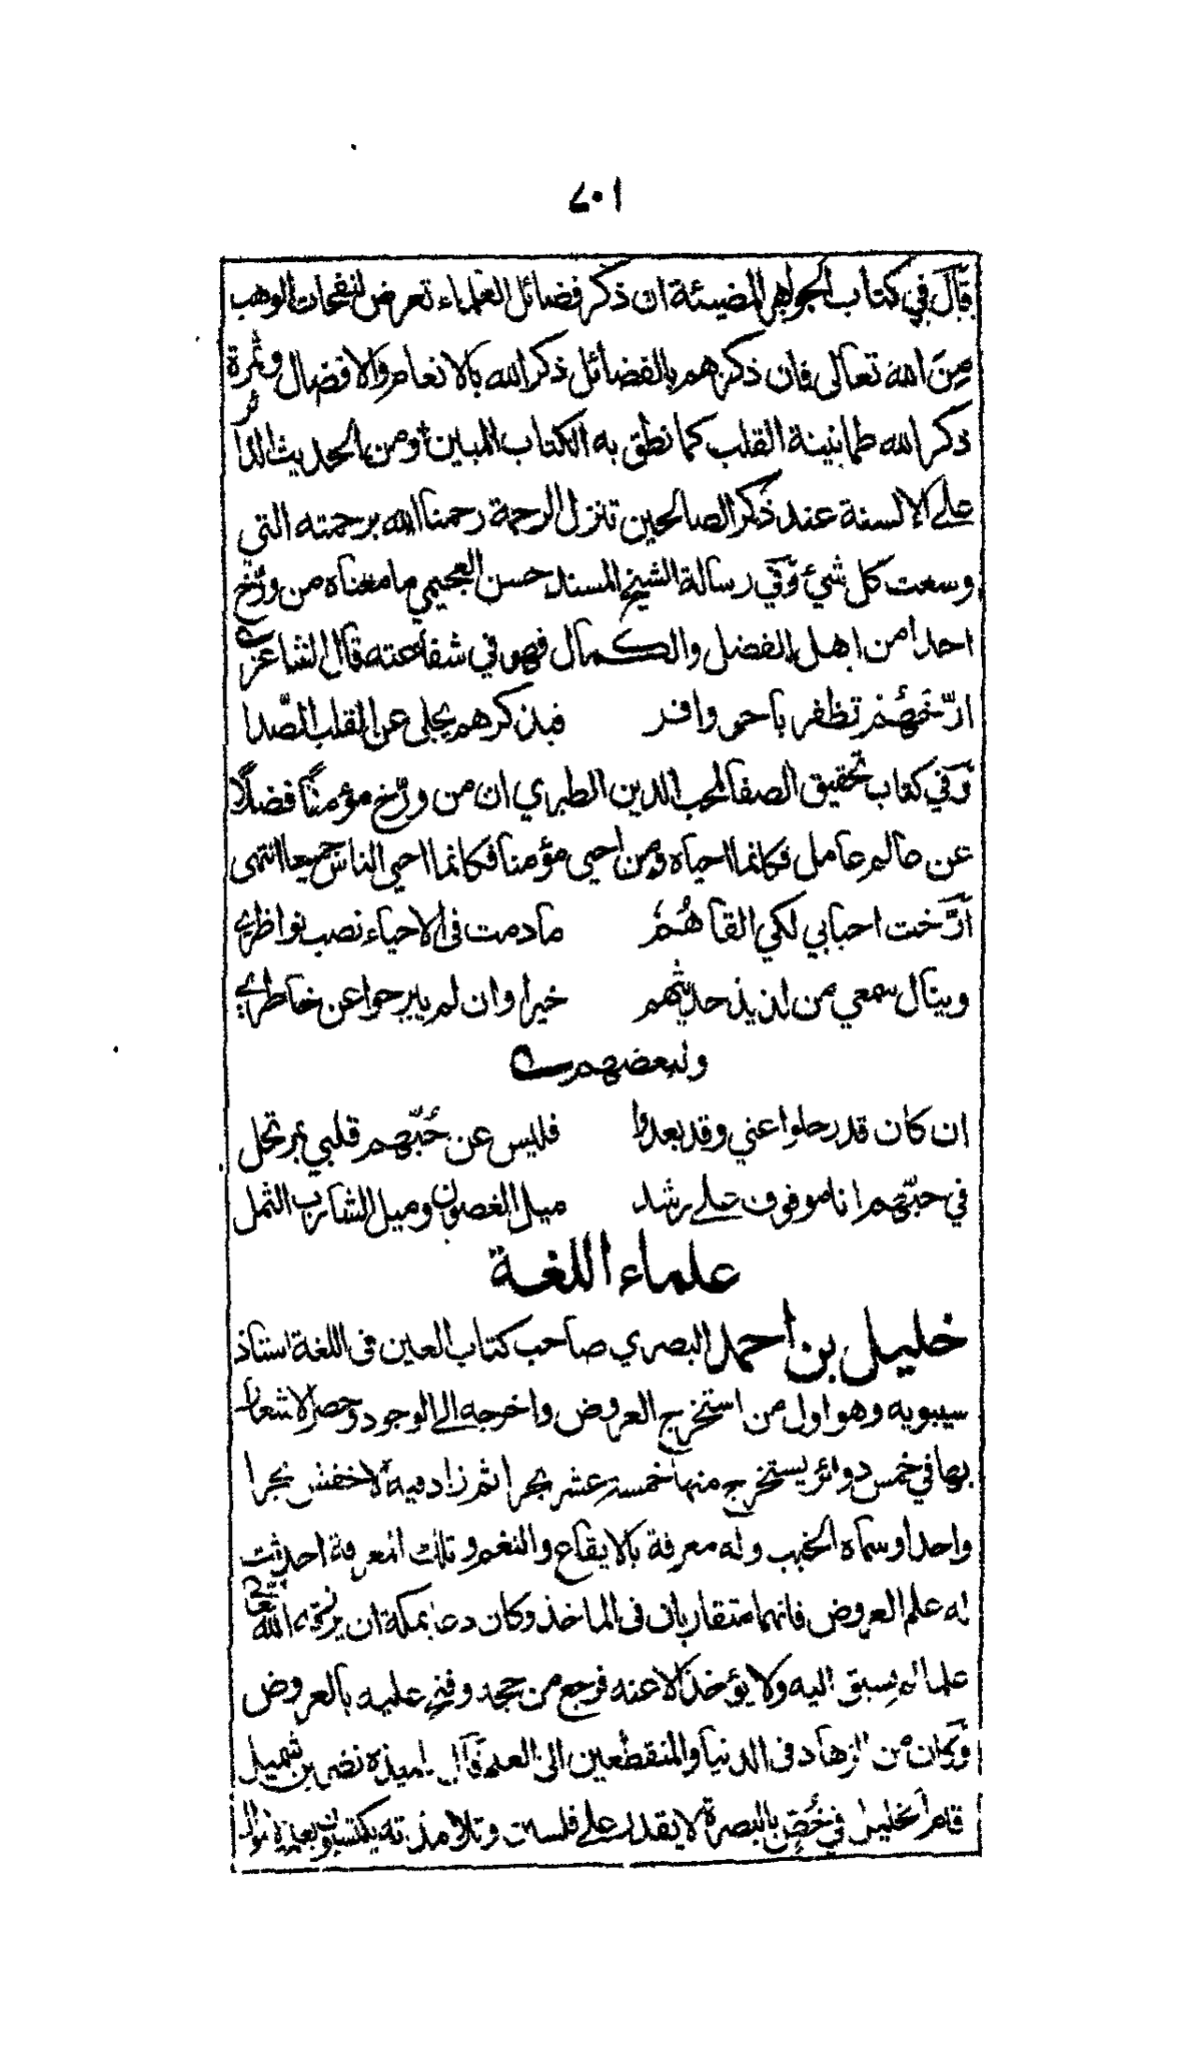 ٧٠١
قال في كتاب الجواهر المضيئة ان ذكر فضائل العلماء تعرض لنفحات الوهب
من الله تعالى فان ذكرهم بالفضائل ذكر الله بالانعام والافضال وثمرة
ذكر الله طمانينة القلب كما نطق به الكتاب المبين ومن الحديث الدائر
على الالسنة عند ذكر الصالحين تنزل الرحمة رحمنا الله برحمته التي
وسعت كل شيء وفي رسالة الشيخ المسند حسن العجيمي ما معناه من ورّخ
احدا من اهل الفضل والكمال فهو في شفاعته قال الشاعر
ارّخهم تظفر باجر وافر فبذكرهم يجلى عن القلب الصّدا
وفي كتاب تحقيق الصفا لمحب الدين الطبري ان من ورّخ مؤمنًا فضلًا
عن عالم عامل فكانما احياه ومن احيى مؤمنا فكانما احيى الناس جميعا انتهى
ارّخت احبابي لكي القاهُمُ ما دمت في الاحياء نصب نواظري
وينال سمعي من لذيذ حديثهم خيرا وان لم يبرحوا عن خاطري
ولبعضهم
ان كان قد رحلوا عني وقد بعدوا فليس عن حُبّهم قلبي بمرتحل
في حبّهم انا موقوف على رشد ميل الغصون وميل الشارب الثمل
علماء اللغة
خليل بن احمد البصري صاحب كتاب العين في اللغة استاذ
سيبويه وهو اول من استخرج العروض واخرجه الى الوجود وحصر الاشعار
بها في خمس دوائر يستخرج منها خمسة عشر بحرا ثم زاد فيه الاخفش بحرا
واحدا وسماه الخبب وله معرفة بالايقاع والنغم وتلك المعرفة احدثت
له علم العروض فانهما متقاربان في الماخذ وكان دعا بمكة ان يرزقه الله تعالى
علما لم يسبق اليه ولا يؤخذ الا عنه فرجع من حجه وفتح عليه بالعروض
وكان من الزهاد في الدنيا والمنقطعين الى العلم قال تلميذه نضر بن شميل
قام الخليل في خُصّ بالبصرة لا يقدر على فلسين وتلامذته يكتسبون بعلمه الاموال